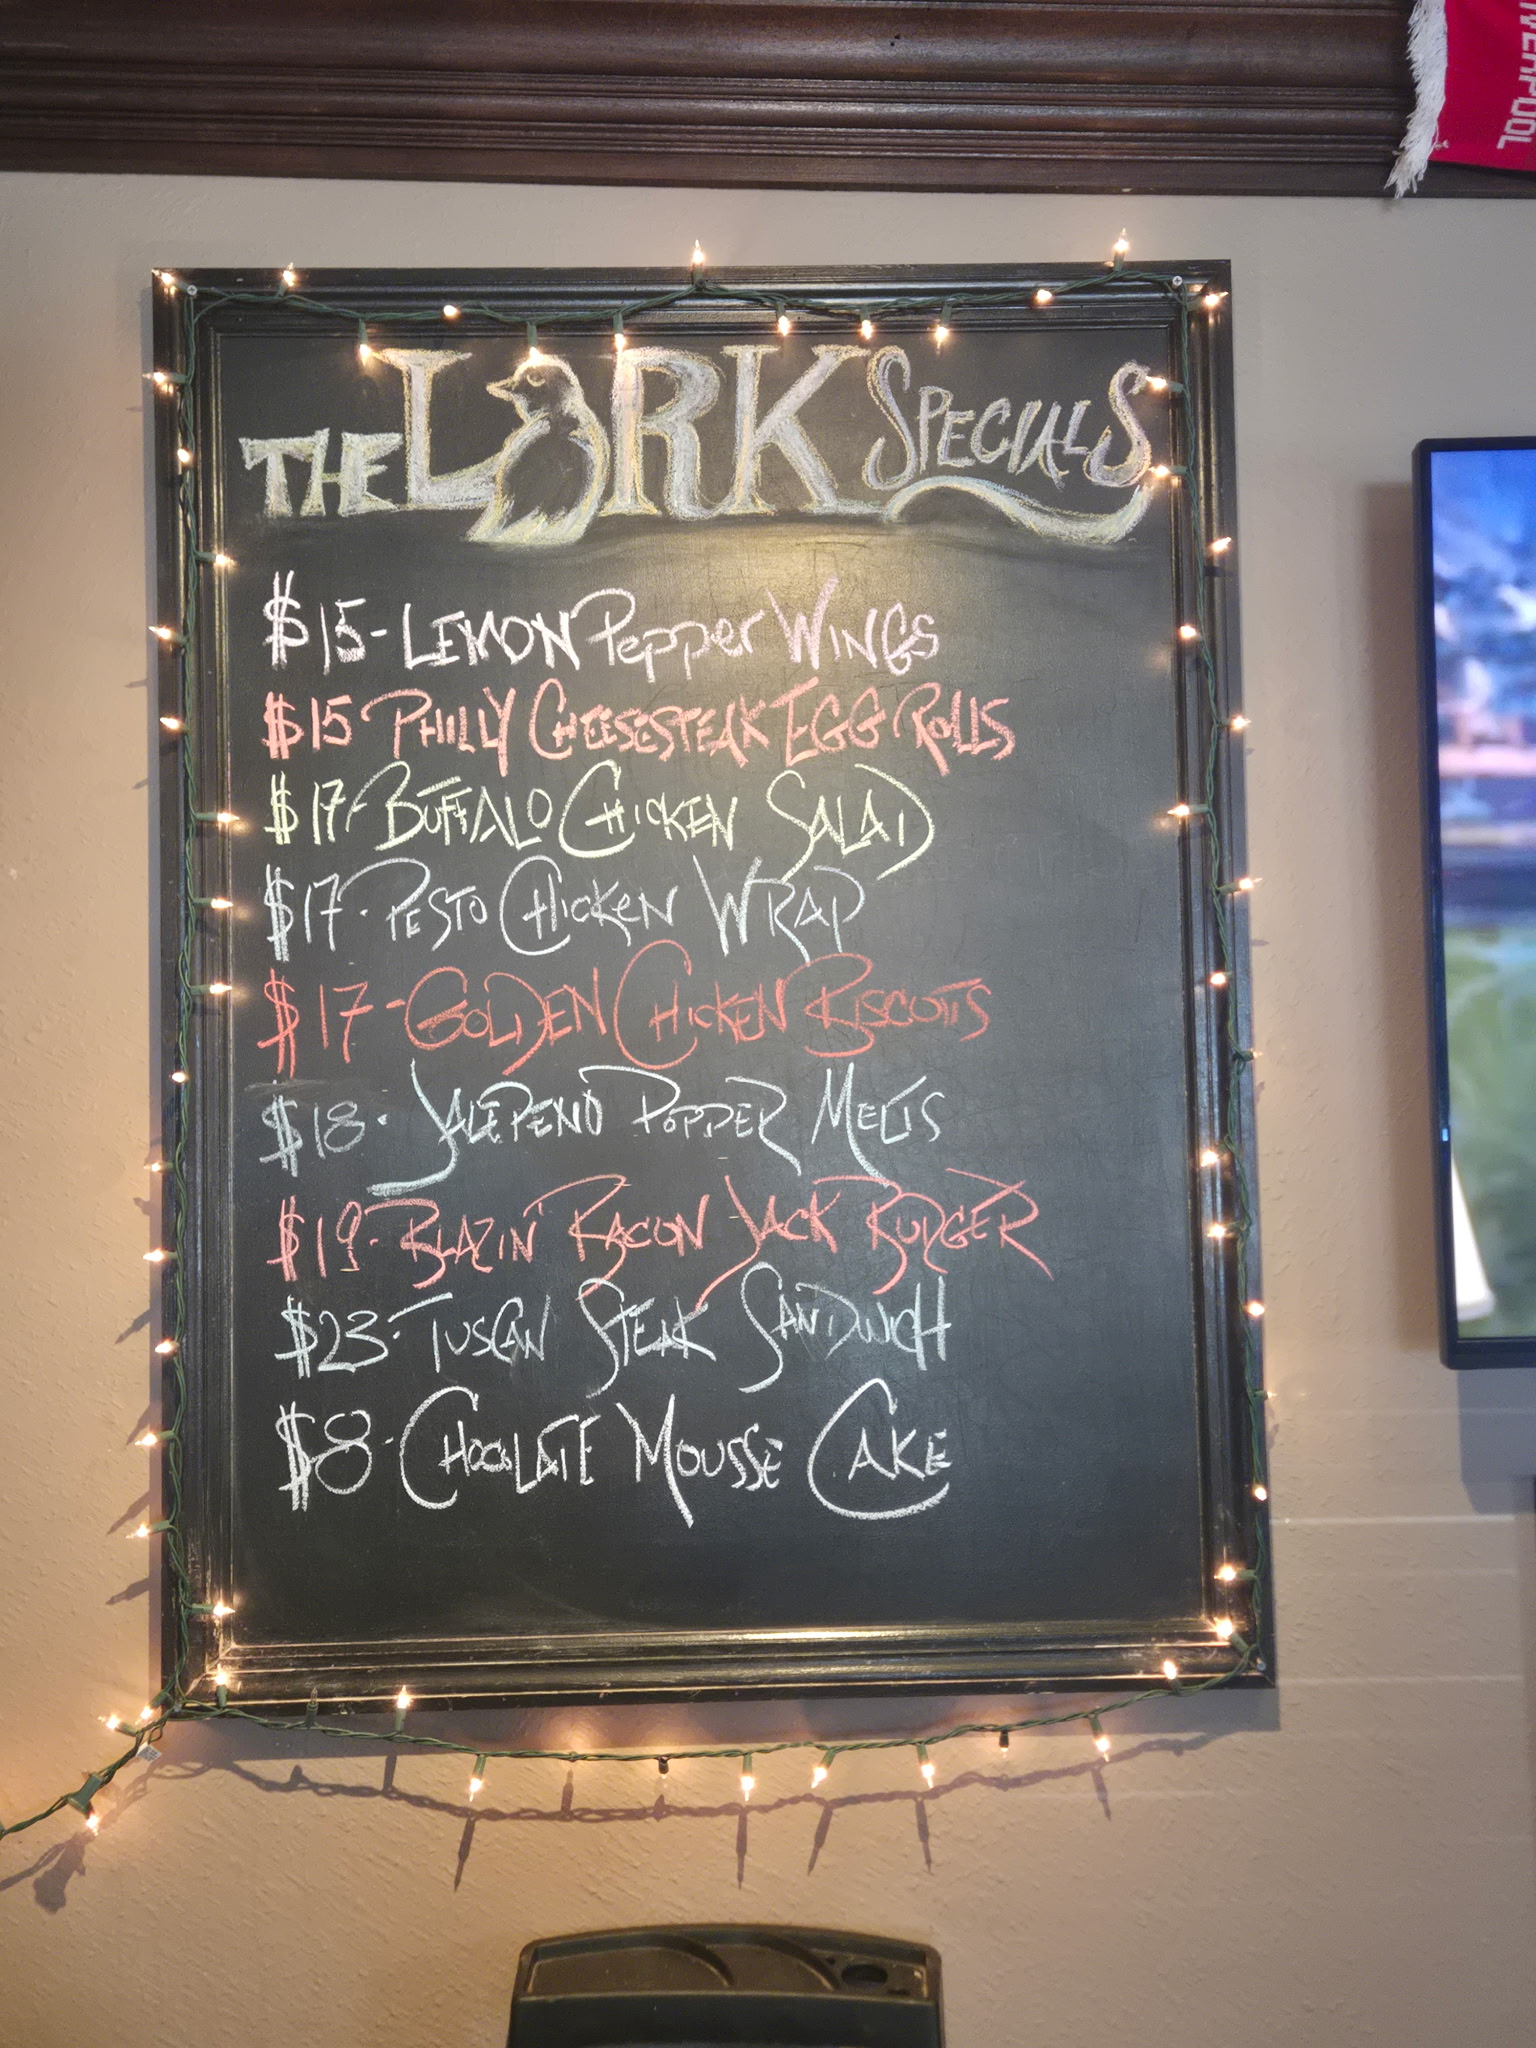 THE LARK SPECIALS
$15-LEMON Pepper WINGS
$15 PHILLY CHEESESTEAK EGG ROLLS
$17-BUFFALO CHICKEN SALAD
$17-PESTO CHICKEN WRAP
$17-GOLDEN CHICKEN BISCOTTS
$18-JALEPENO POPPER MELTS
$19-BLAZIN' BACON JACK BURGER
$23-TUSCAN STEAK SANDWICH
$8-CHOCOLATE MOUSSE CAKE